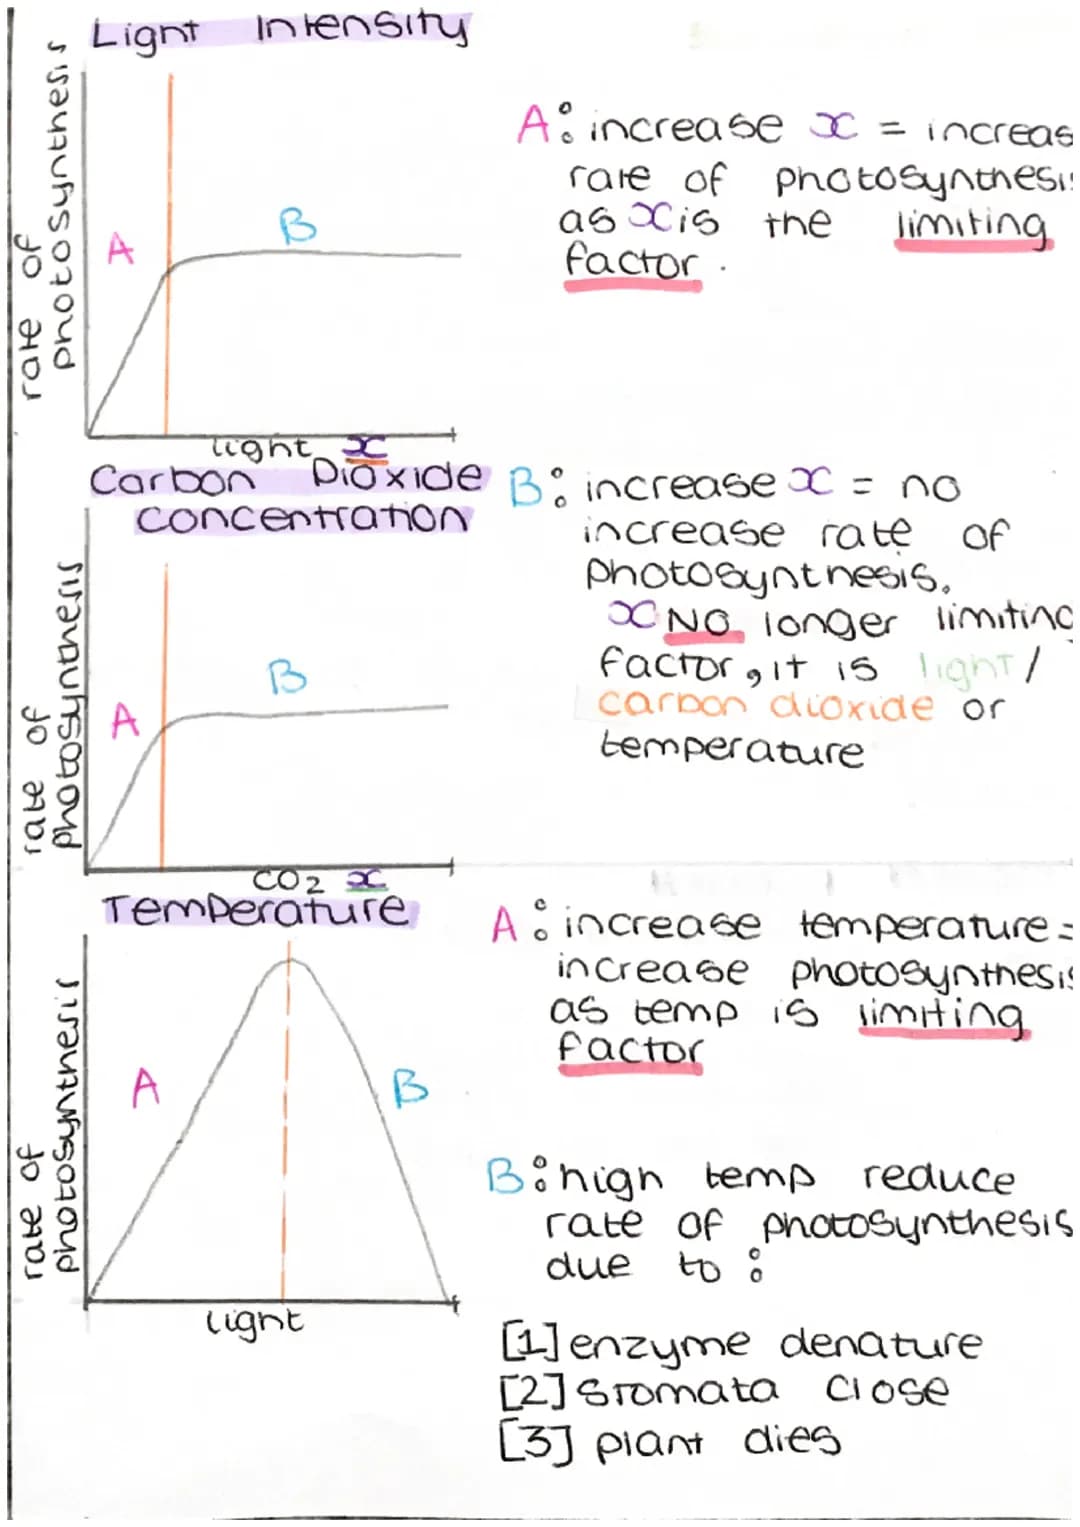 Light Intensity
rate of
photosynthesis
A
B
light x
A: increase x = increas
rate of photosynthesis
as x is the limiting
factor.
Carbon Dioxide
concentration
rate of
photosynthesis
A
B
CO2 x
B: increase x = no
increase rate of
photosynthesis.
x NO longer limiting
factor, it is light/
carbon dioxide or
temperature
Temperature
rate of
photosynthesis
A
B
light
A: increase temperature =
increase photosynthesis
as temp is limiting
factor
B: high temp reduce
rate of photosynthesis
due to :
[1] enzyme denature
[2] stomata close
[3] plant dies